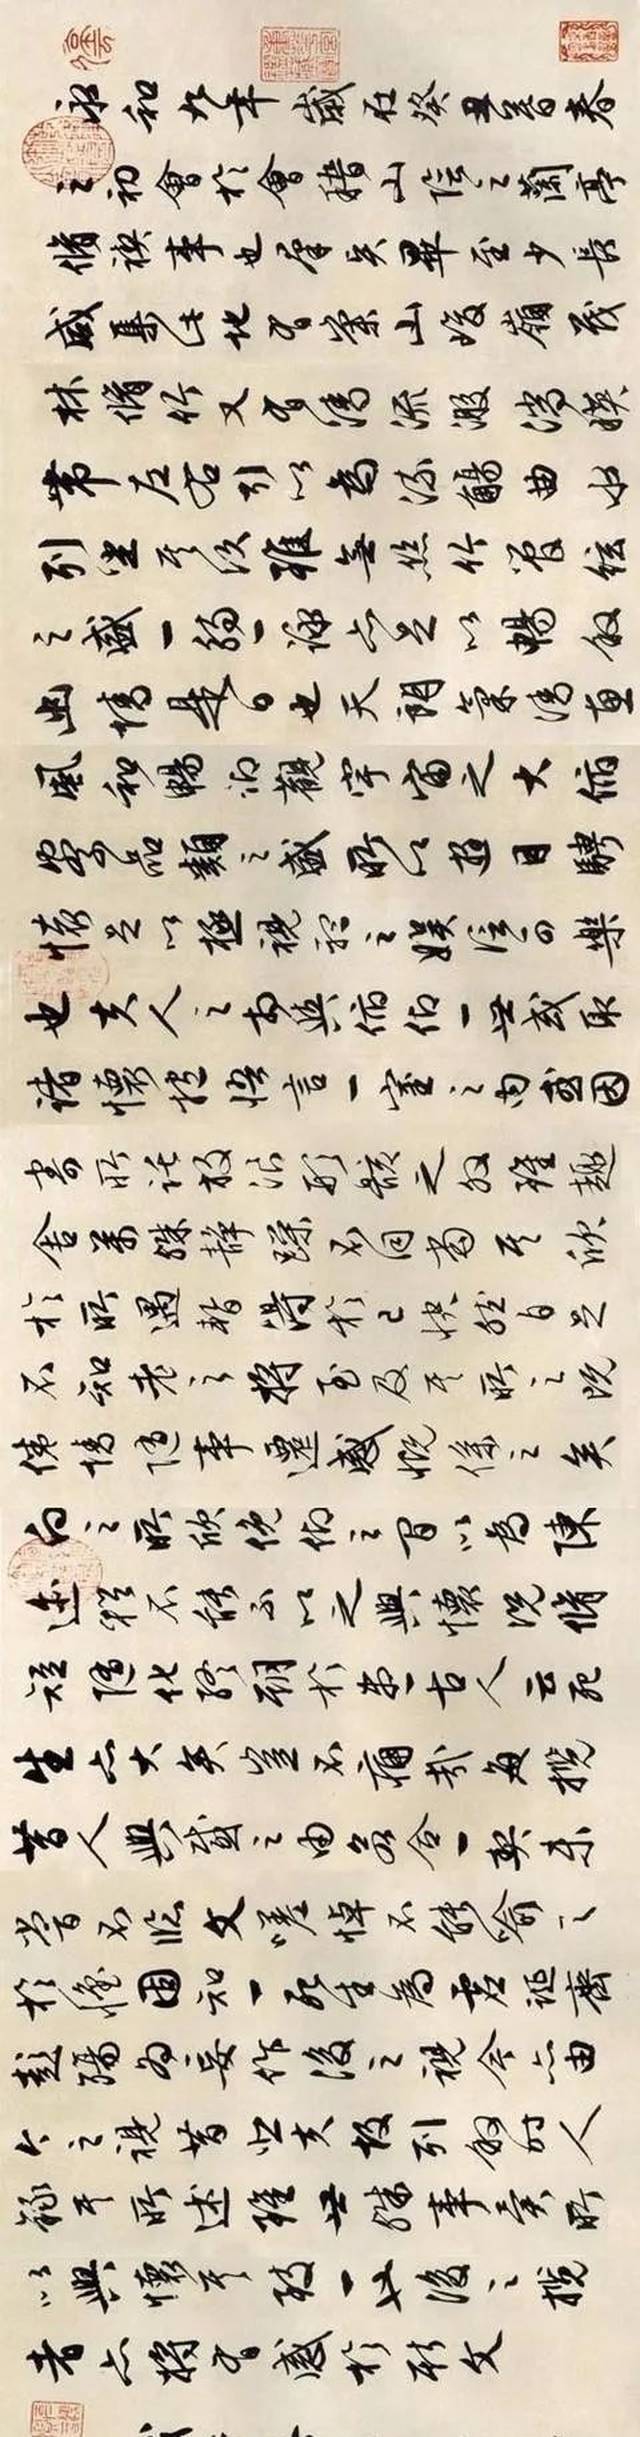 永和九年歲在癸丑暮春
之初會於會稽山陰之蘭亭
脩禊事也群賢畢至少長
咸集此地有崇山峻嶺茂
林脩竹又有清流激湍暎
帶左右引以為流觴曲水
列坐其次雖無絲竹管絃
之盛一觴一詠亦足以暢敘
幽情是日也天朗氣清惠
風和暢仰觀宇宙之大俯
察品類之盛所以遊目騁
懷足以極視聽之娛信可樂
也夫人之相與俯仰一世或取
諸懷抱悟言一室之內或因
寄所託放浪形骸之外雖趣
舍萬殊靜躁不同當其欣
於所遇暫得於己快然自足
不知老之將至及其所之既
倦情隨事遷感慨係之矣
向之所欣俛仰之間以為陳
迹猶不能不以之興懷況脩
短隨化終期於盡古人云死
生亦大矣豈不痛哉每攬
昔人興感之由若合一契未
嘗不臨文嗟悼不能喻之
於懷固知一死生為虛誕齊
彭殤為妄作後之視今亦由
今之視昔悲夫故列敘時人
錄其所述雖世殊事異所
以興懷其致一也後之攬
者亦將有感於斯文